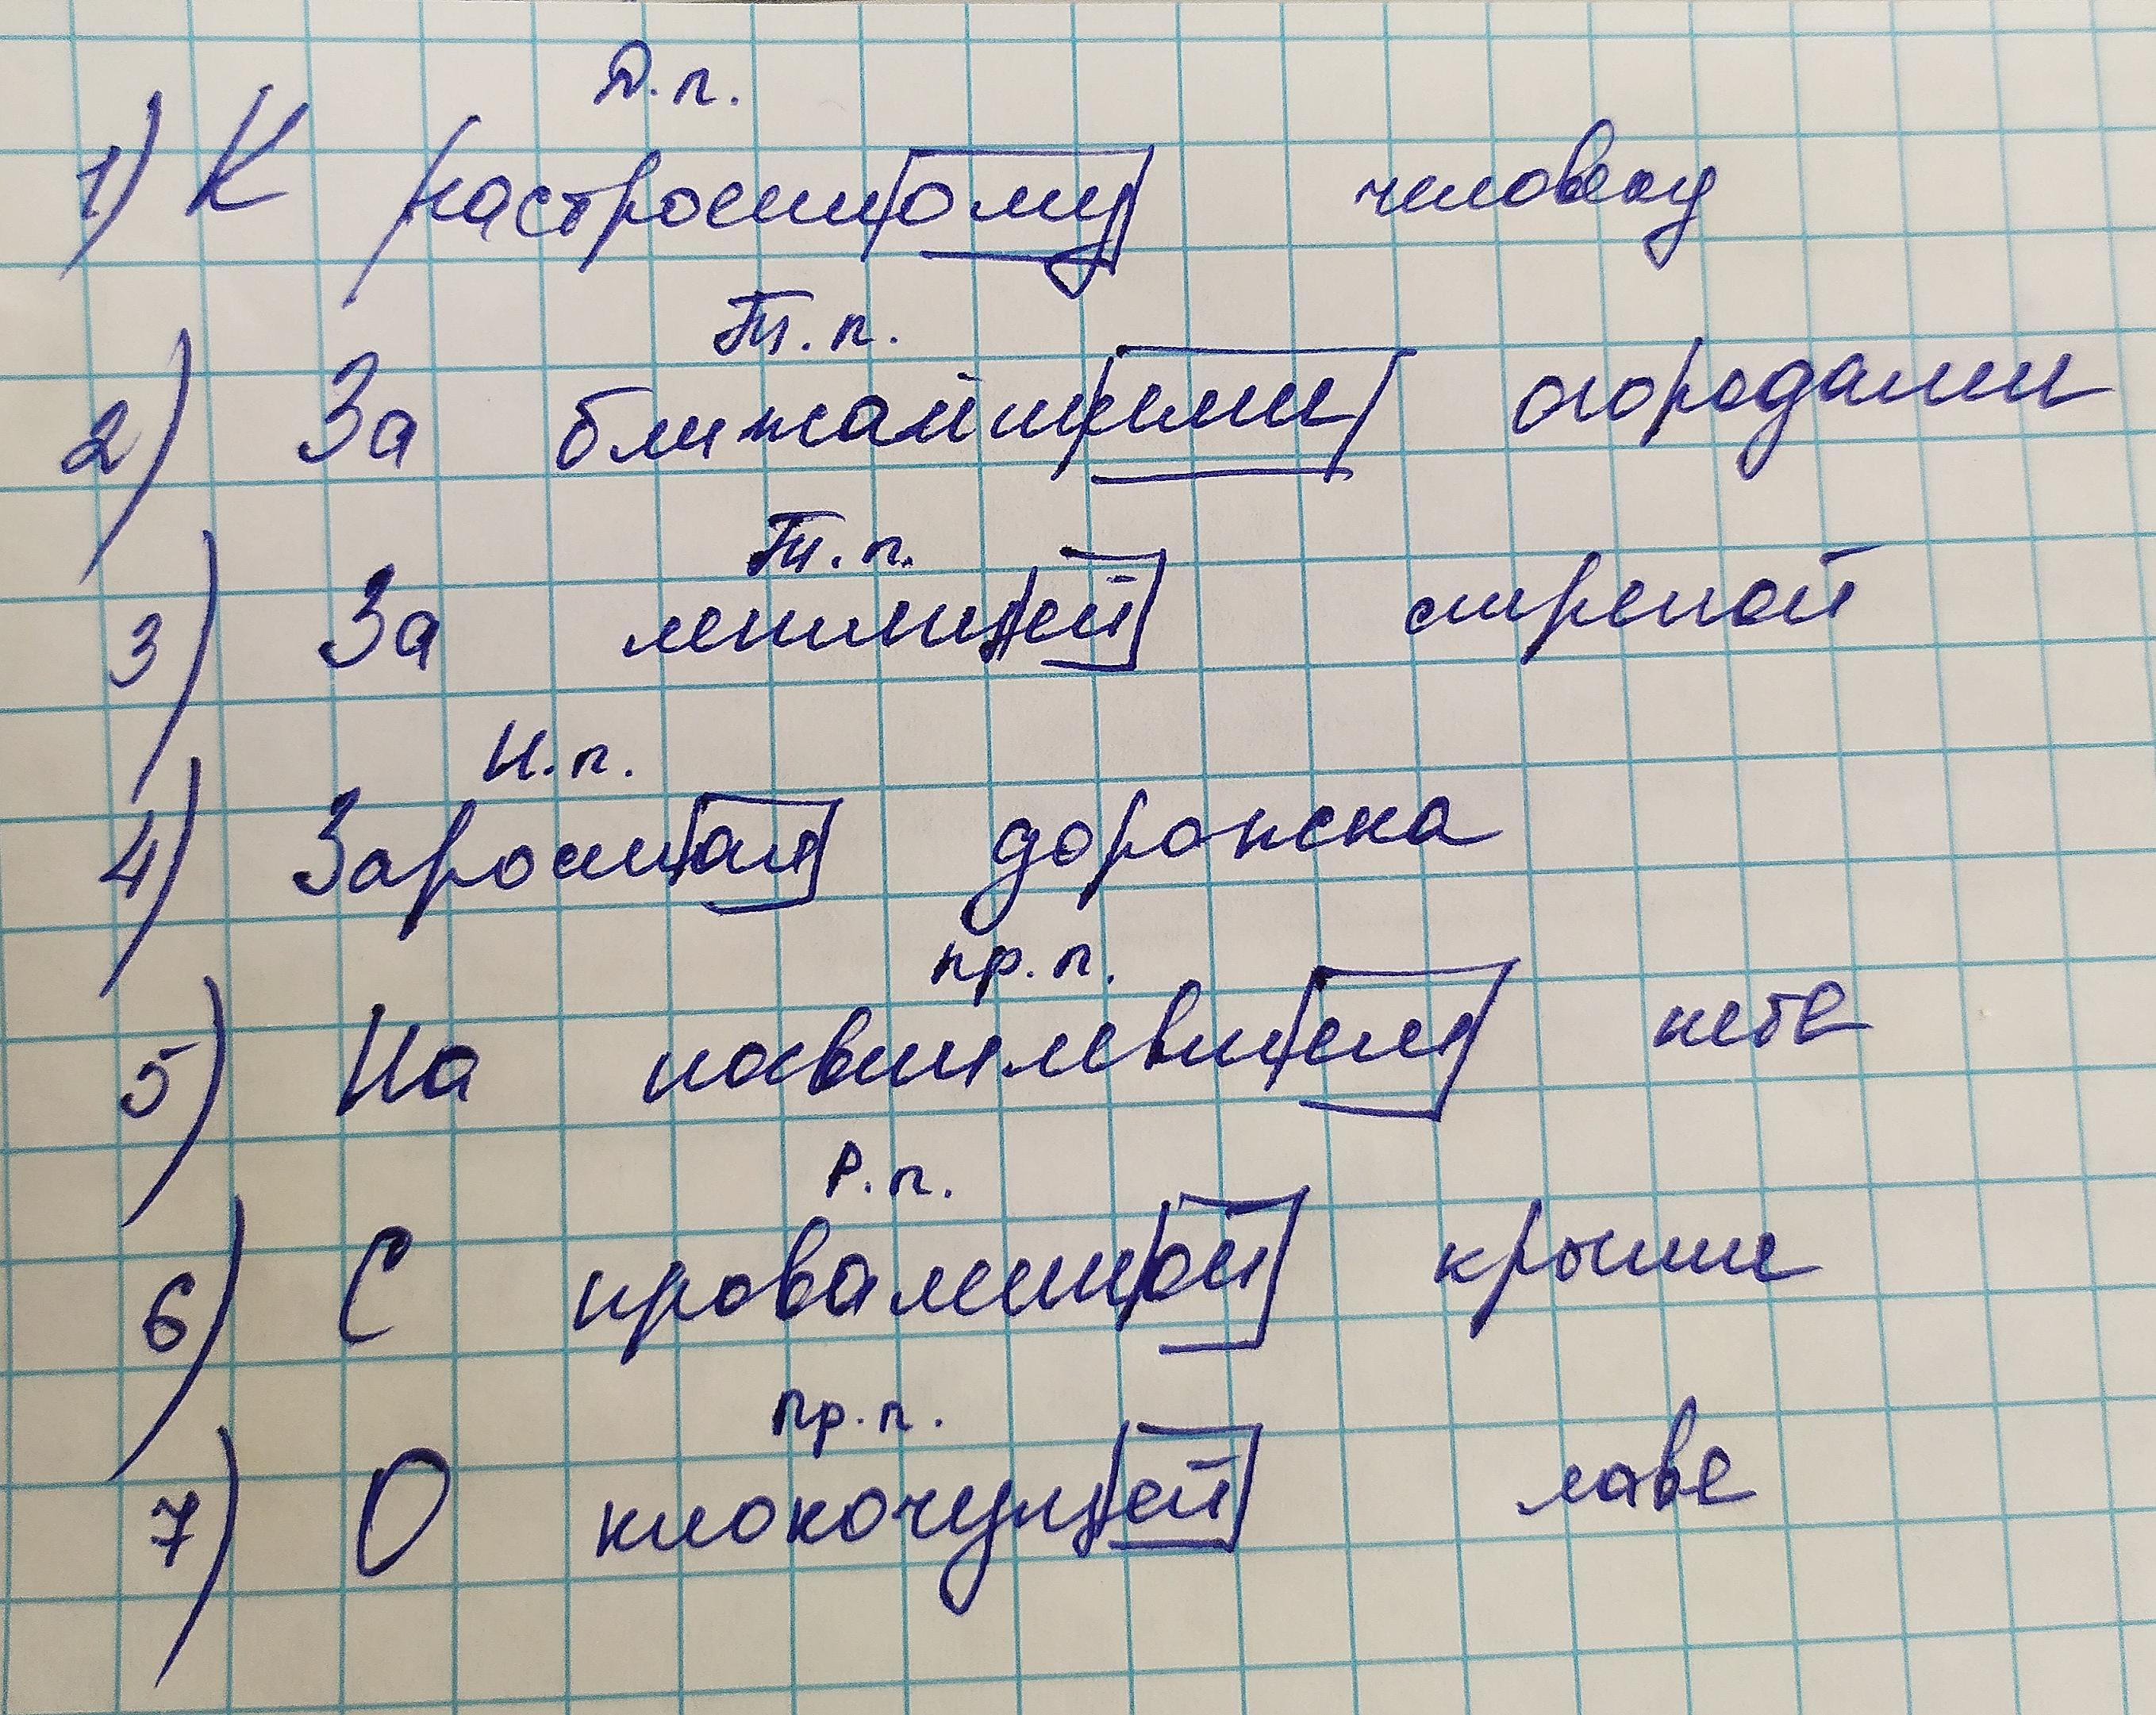 Д.п.
1) К настроенному человеку
Т.п.
2) За ближайшими огородами
Т.п.
3) За летящей стрелой
И.п.
4) Заросшая дорожка
пр.п.
5) На посветлевшем небе
Р.п.
6) С проваленной крыши
Пр.п.
7) О клокочущей лаве